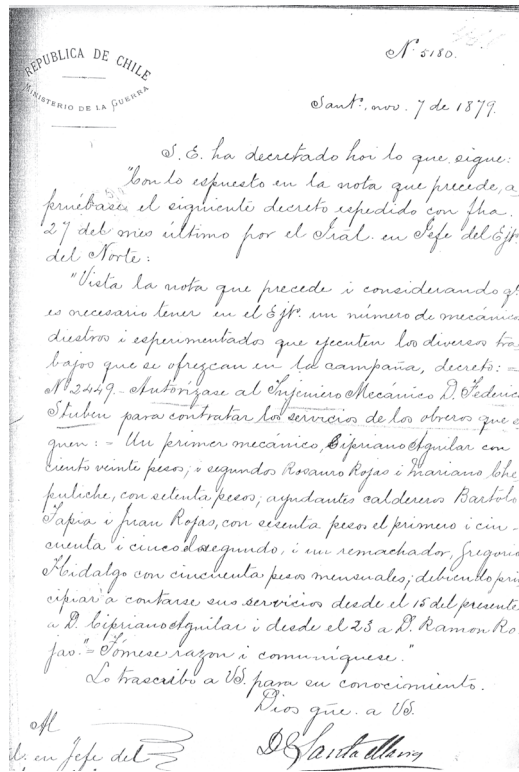 REPUBLICA DE CHILE
MINISTERIO DE LA GUERRA
Nº 5180.
Santº, nov. 7 de 1879.
S. E. ha decretado hoi lo que sigue:
"Con lo espuesto en la nota que precede, a
pruébase el siguiente decreto espedido con fha.
27 del mes último por el Jral. en Jefe del Ejtº
del Norte:
"Vista la nota que precede i considerando qe
es necesario tener en el Ejtº. un número de mecánicos
diestros i esperimentados que ejecuten los diversos tra
bajos que se ofrezcan en la campaña, decreto: =
Nº 2449.- Autorízase al Injeniero Mecánico D. Federico
Stuben para contratar los servicios de los obreros que si
guen: = Un primer mecánico, Cipriano Aguilar con
ciento veinte pesos; i segundos Rosauro Rojas i Mariano Che
puliche, con setenta pesos; ayudantes caldereros Bartolo
Tapia i Juan Rojas, con sesenta pesos el primero i cin-
cuenta i cinco el segundo, i un remachador, Gregorio
Hidalgo con cincuenta pesos mensuales; debiendo prin
cipiar a contarse sus servicios desde el 15 del presente
a D. Cipriano Aguilar i desde el 23 a D. Ramon Ro
jas."= Tómese razon i comuníquese."
Lo trascribo a VS. para su conocimiento.
Dios gûe. a VS.
D. Santa Maria
Al
l. en Jefe del